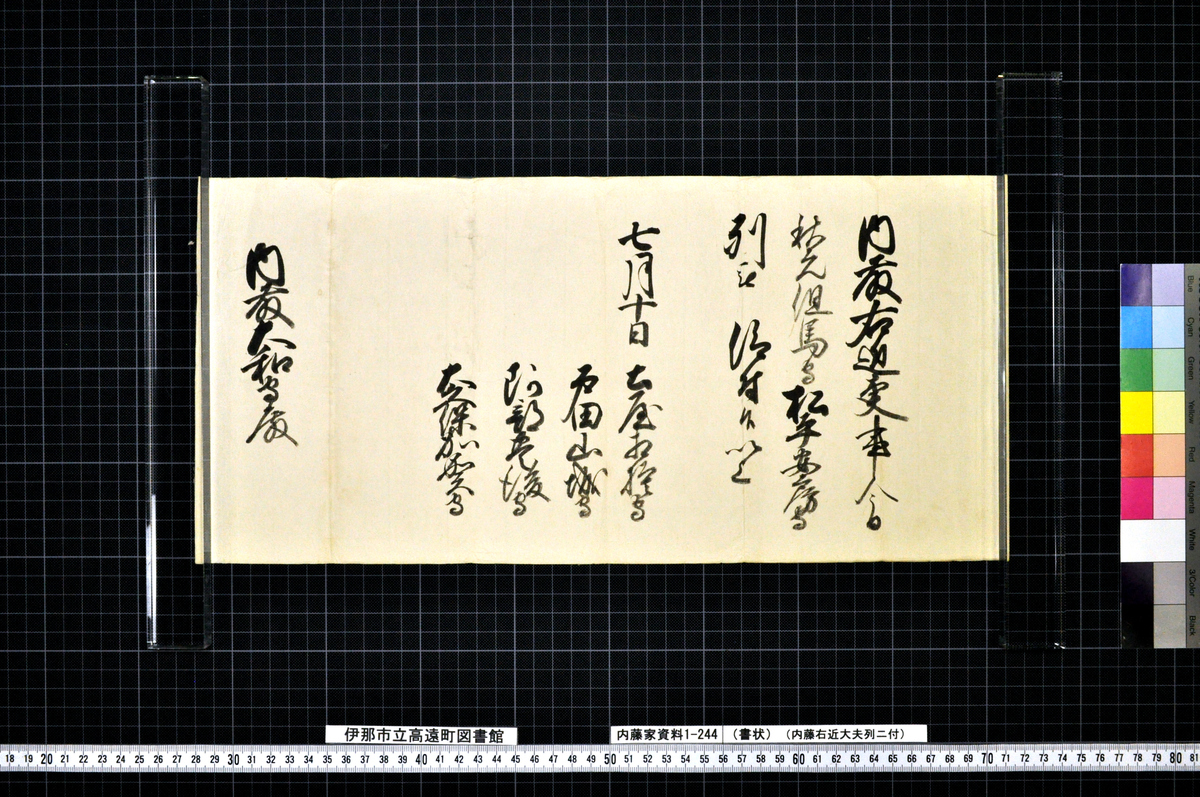 内藤右近大夫事今日
秋元但馬守松平安房守
列ニ被
仰付候以上
七月十日
土屋相模守
戸田山城守
阿部豊後守
大久保加賀守
内藤大和守殿
伊那市立高遠町図書館
内藤家資料1-244 (書状) (内藤右近大夫列ニ付)
18 19 20 21 22 23 24 25 26 27 28 29 30 31 32 33 34 35 36 37 38 39 40 41 42 43 44 45 46 47 48 49 50 51 52 53 54 55 56 57 58 59 60 61 62 63 64 65 66 67 68 69 70 71 72 73 74 75 76 77 78 79 80 81
Blue
Cyan
Green
Yellow
Red
Magenta
White
3/Color
Black